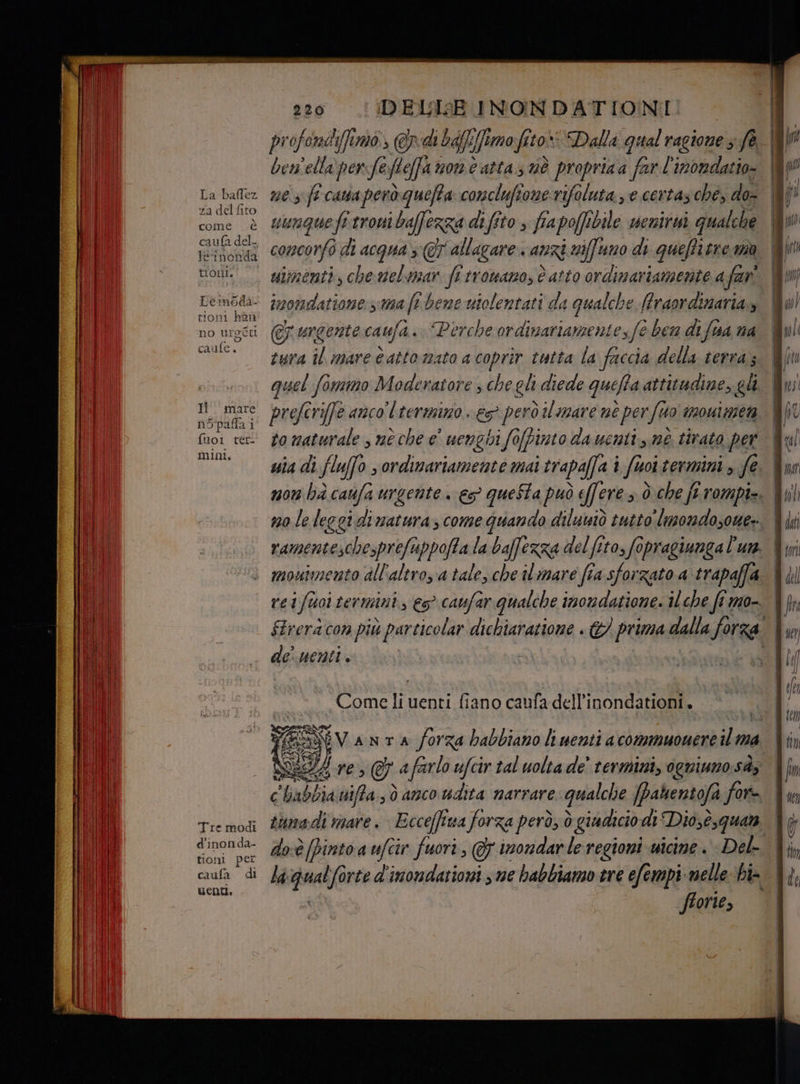 220 DELLE INONDATIONI
profondissimo, & di bassissimo sito. Dalla qual ragione, se
ben' ella per se stessa non è atta, nè propria a far l'inondatio-
ne, si caua però questa conclusione risoluta, e certa, che, do-
uunque si troui bassezza di sito, sia possibile uenirui qualche
concorso di acqua, & allagare. anzi nissuno di questi tre mo
uimenti, che nel mar si trouano, è atto ordinariamente a far'
inondatione, ma si bene uiolentati da qualche straordinaria,
& urgente causa. Perche ordinariamente, se ben di sua na
tura il mare è atto nato a coprir tutta la faccia della terra;
quel sommo Moderatore, che gli diede questa attitudine, gli
prescrisse anco'l termino. & però il mare nè per suo mouimen
to naturale, nè che e' uenghi sospinto da uenti, nè tirato per
uia di flusso, ordinariamente mai trapassa i suoi termini, se
non hà causa urgente. & questa può essere, ò che si rompi-
no le leggi di natura, come quando diluuiò tutto'l mondo, oue-
ramente, che, presupposta la bassezza del sito, sopragiunga l'un
mouimento all'altro, a tale, che il mare sia sforzato a trapassa
re i suoi termini, & causar qualche inondatione. il che si mo-
strerà con più particolar dichiaratione. & prima dalla forza
de' uenti.
Come li uenti siano causa dell'inondationi.
QVANTA forza habbiano li uenti a commuouere il ma
re, & a farlo uscir tal uolta de' termini, ogniuno sà,
c'habbia uista, ò anco udita narrare qualche spauentosa for-
tuna di mare. Eccessiua forza però, ò giudicio di Dio, è, quan
do è spinto a uscir fuori, & inondar le regioni uicine. Del-
la qual sorte d'inondationi, ne habbiamo tre esempi nelle hi-
storie,
La bassez
za del sito
come è
causa del-
le inonda
tioni.
Le inōda-
tioni han
no urgēti
cause.
Il mare
nō passa i
suoi ter-
mini.
Tre modi
d'inonda-
tioni per
causa di
uenti.